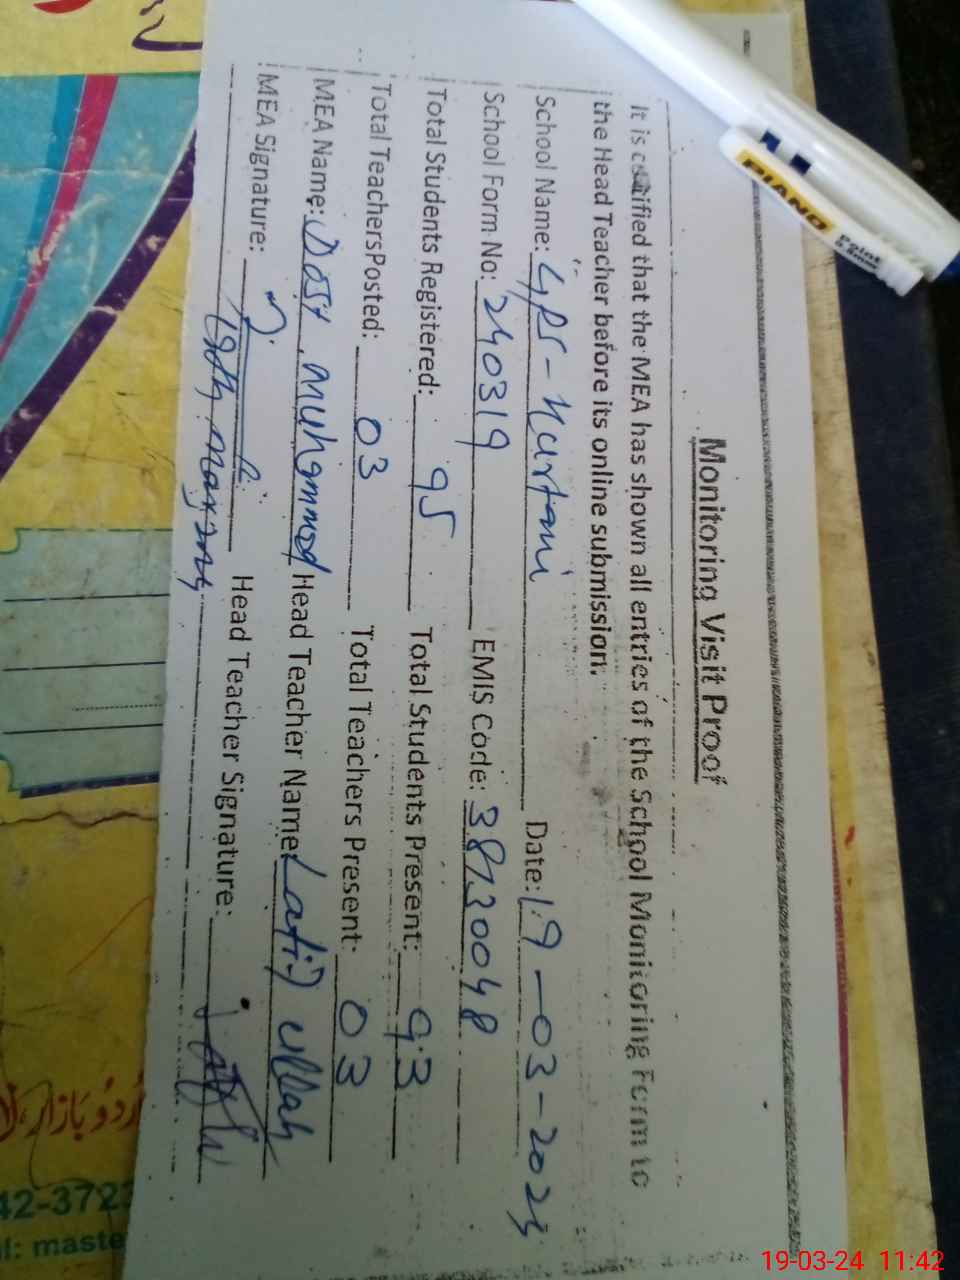 Monitoring Visit Proof
It is certified that the MEA has shown all entries of the School Monitoring Form to
the Head Teacher before its online submission.
School Name: GPS-Kurtani Date: 19-03-2024
School Form No: 240319 EMIS Code: 38730048
Total Students Registered: 95 Total Students Present: 93
Total Teachers Posted: 03 Total Teachers Present: 03
MEA Name: Dost Muhammad Head Teacher Name Latif Ullah
MEA Signature: Head Teacher Signature:
19th March, 2024
PIANO
Point
0.8mm
42-372
il: maste
19-03-24 11:42